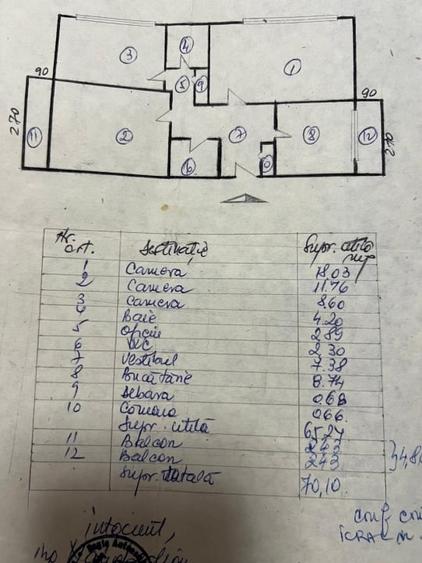 3
4
5
9
1
90
90
270
11
2
7
8
12
270
6
Nr. crt. Destinația Supr. utilă mp
1 Camera 18.03
2 Camera 11.76
3 Camera 8.60
4 Baie 4.20
5 Oficiu 2.89
6 WC 2.30
7 Vestibul 7.38
8 Bucătărie 8.74
9 Debara 0.68
10 Cămara 0.66
Supr. utilă 65,24
11 Balcon 2.43
12 Balcon 2.43
Supr. totală 70,10
întocmit,